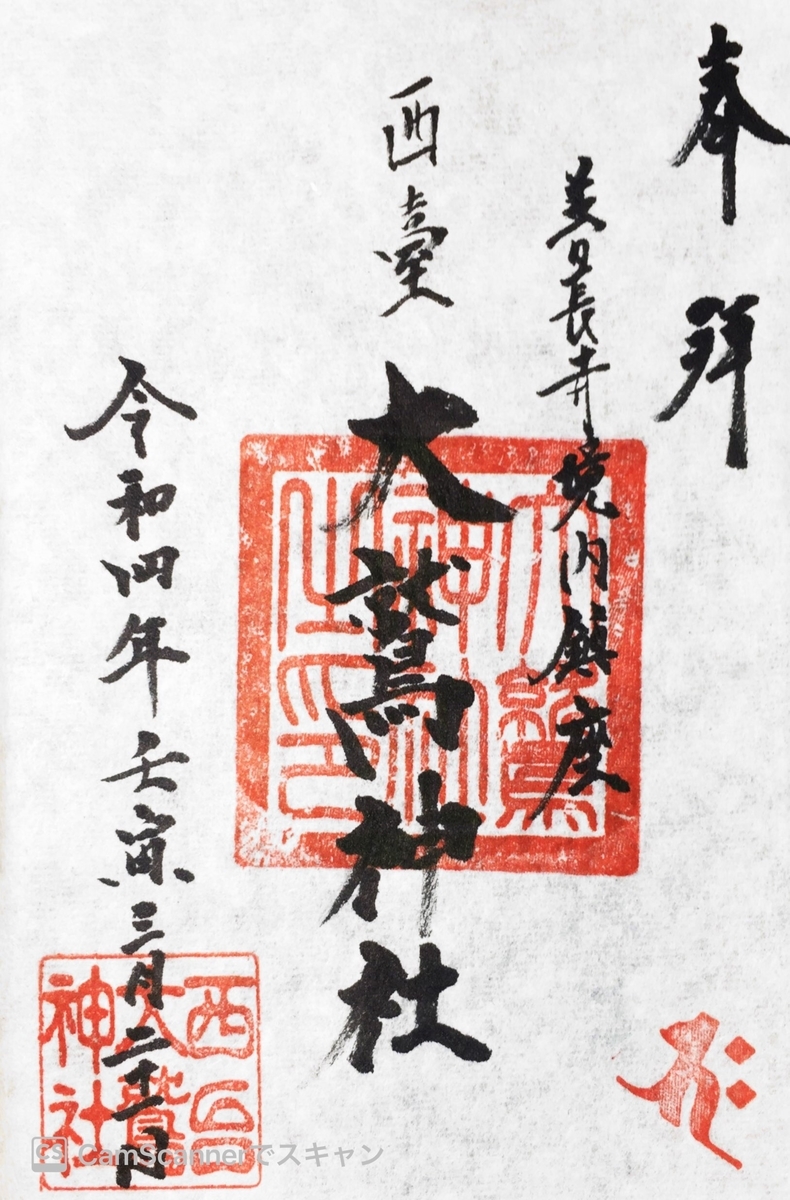 奉拝
長寺境内鎮座
西臺
大鷲神社
令和四年壬寅三月二十一日
大鷲
神社
之印
西台
大鷲
神社
CS CamScannerでスキャン